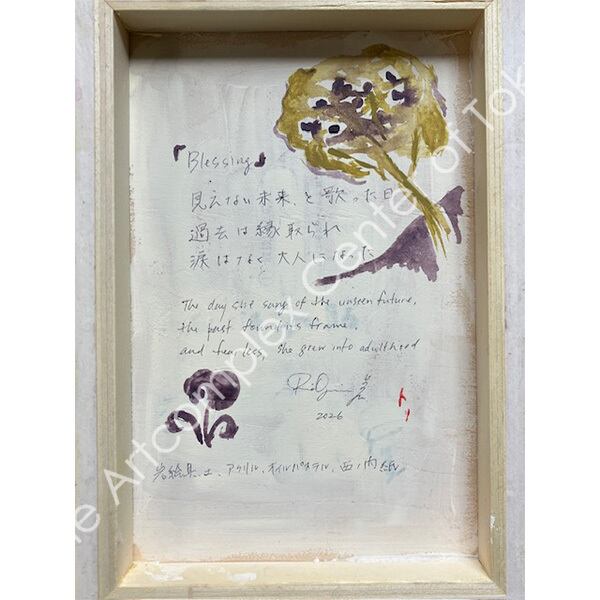 『Blessing』
見えない未来、と歌った日
過去は縁取られ
涙はなく大人になった
The day she sang of the unseen future,
the past found its frame,
and tearless, she grew into adulthood
2026
岩絵具、土、アクリル、オイルパステル、西ノ内紙
The Artcomplex Center of Tok